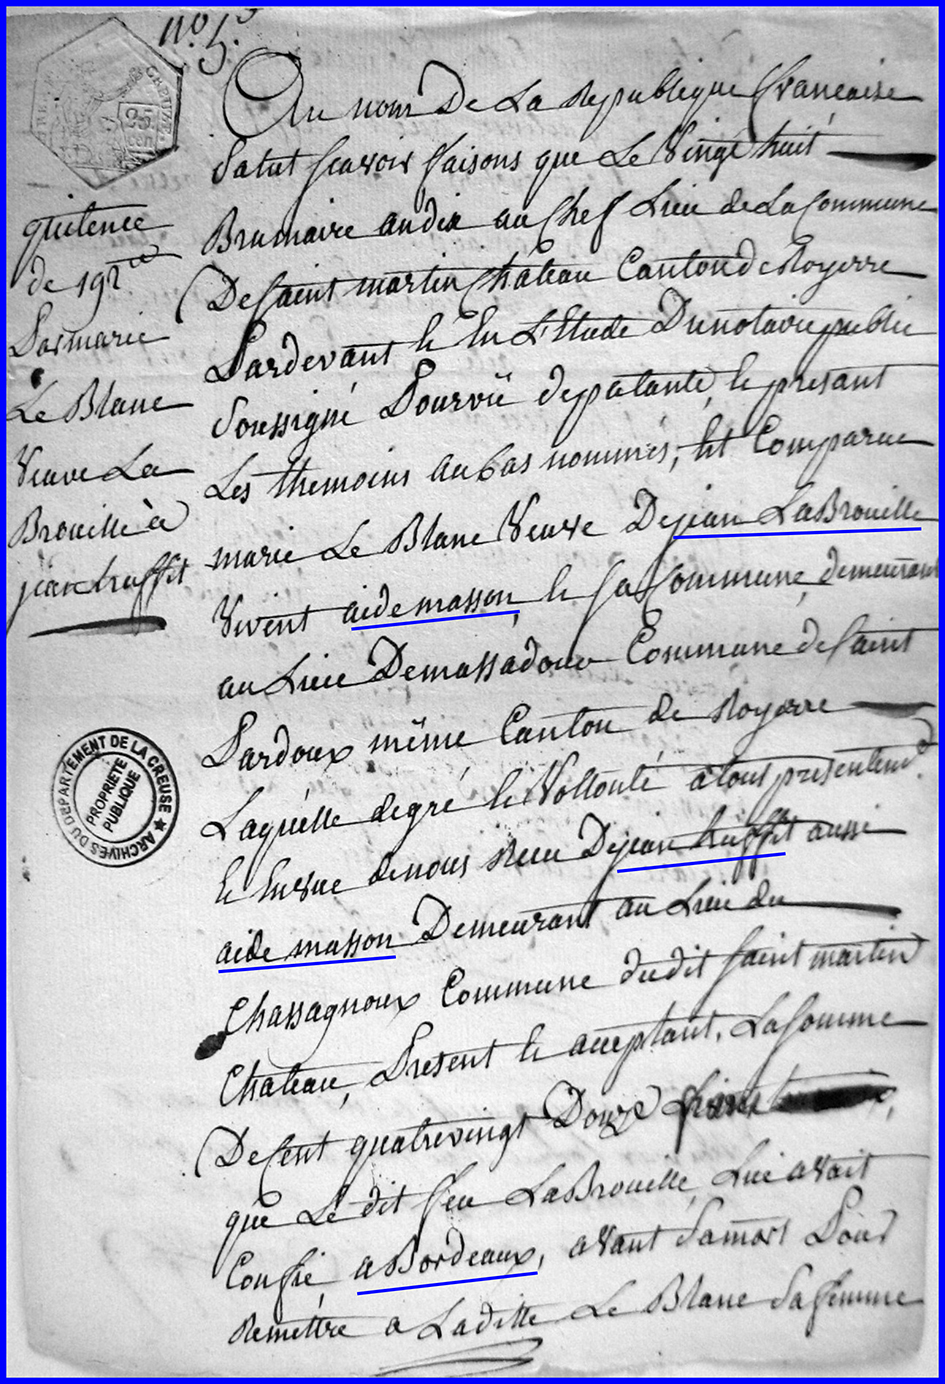 n.o 5.
CREUZE
25
quitence
de 192
Par marie
Le Blanc
Veuve La
Brouille à
jean truffit
Au nom De La Republique francaise
Salut scavoir faisons que Le Vingt huit
Brumaire an dix au Chef Lieu de La Commune
De saint martin Château Canton de Royerre
Pardevant & En L'Etude Du notaire public
soussigné Pourvû de patante, & presant
Les themoins au bas nommés, Est Comparue
marie Le Blanc Veuve De jean LaBrouille
Vivent aide masson, & sa Commune, demeurant
au Lieu De massadour Commune de Saint
Pardoux même Canton de Royerre
Laquelle de gré & Volonté a tous presentement
& En Vue de nous Recu De jean truffit aussi
aide masson Demeurant au Lieu du
Chassagnoux Commune du dit saint martin
Chateau, Present & acceptant, La somme
De Cent quatrevingt Douze
que Le dit feu LaBrouille, Lui avait
Confié a Bordeaux, avant Sa mort Pour
Remettre a La ditte Le Blanc Sa femme
ARCHIVES DU DÉPARTEMENT DE LA CREUSE
PROPRIETE
PUBLIQUE